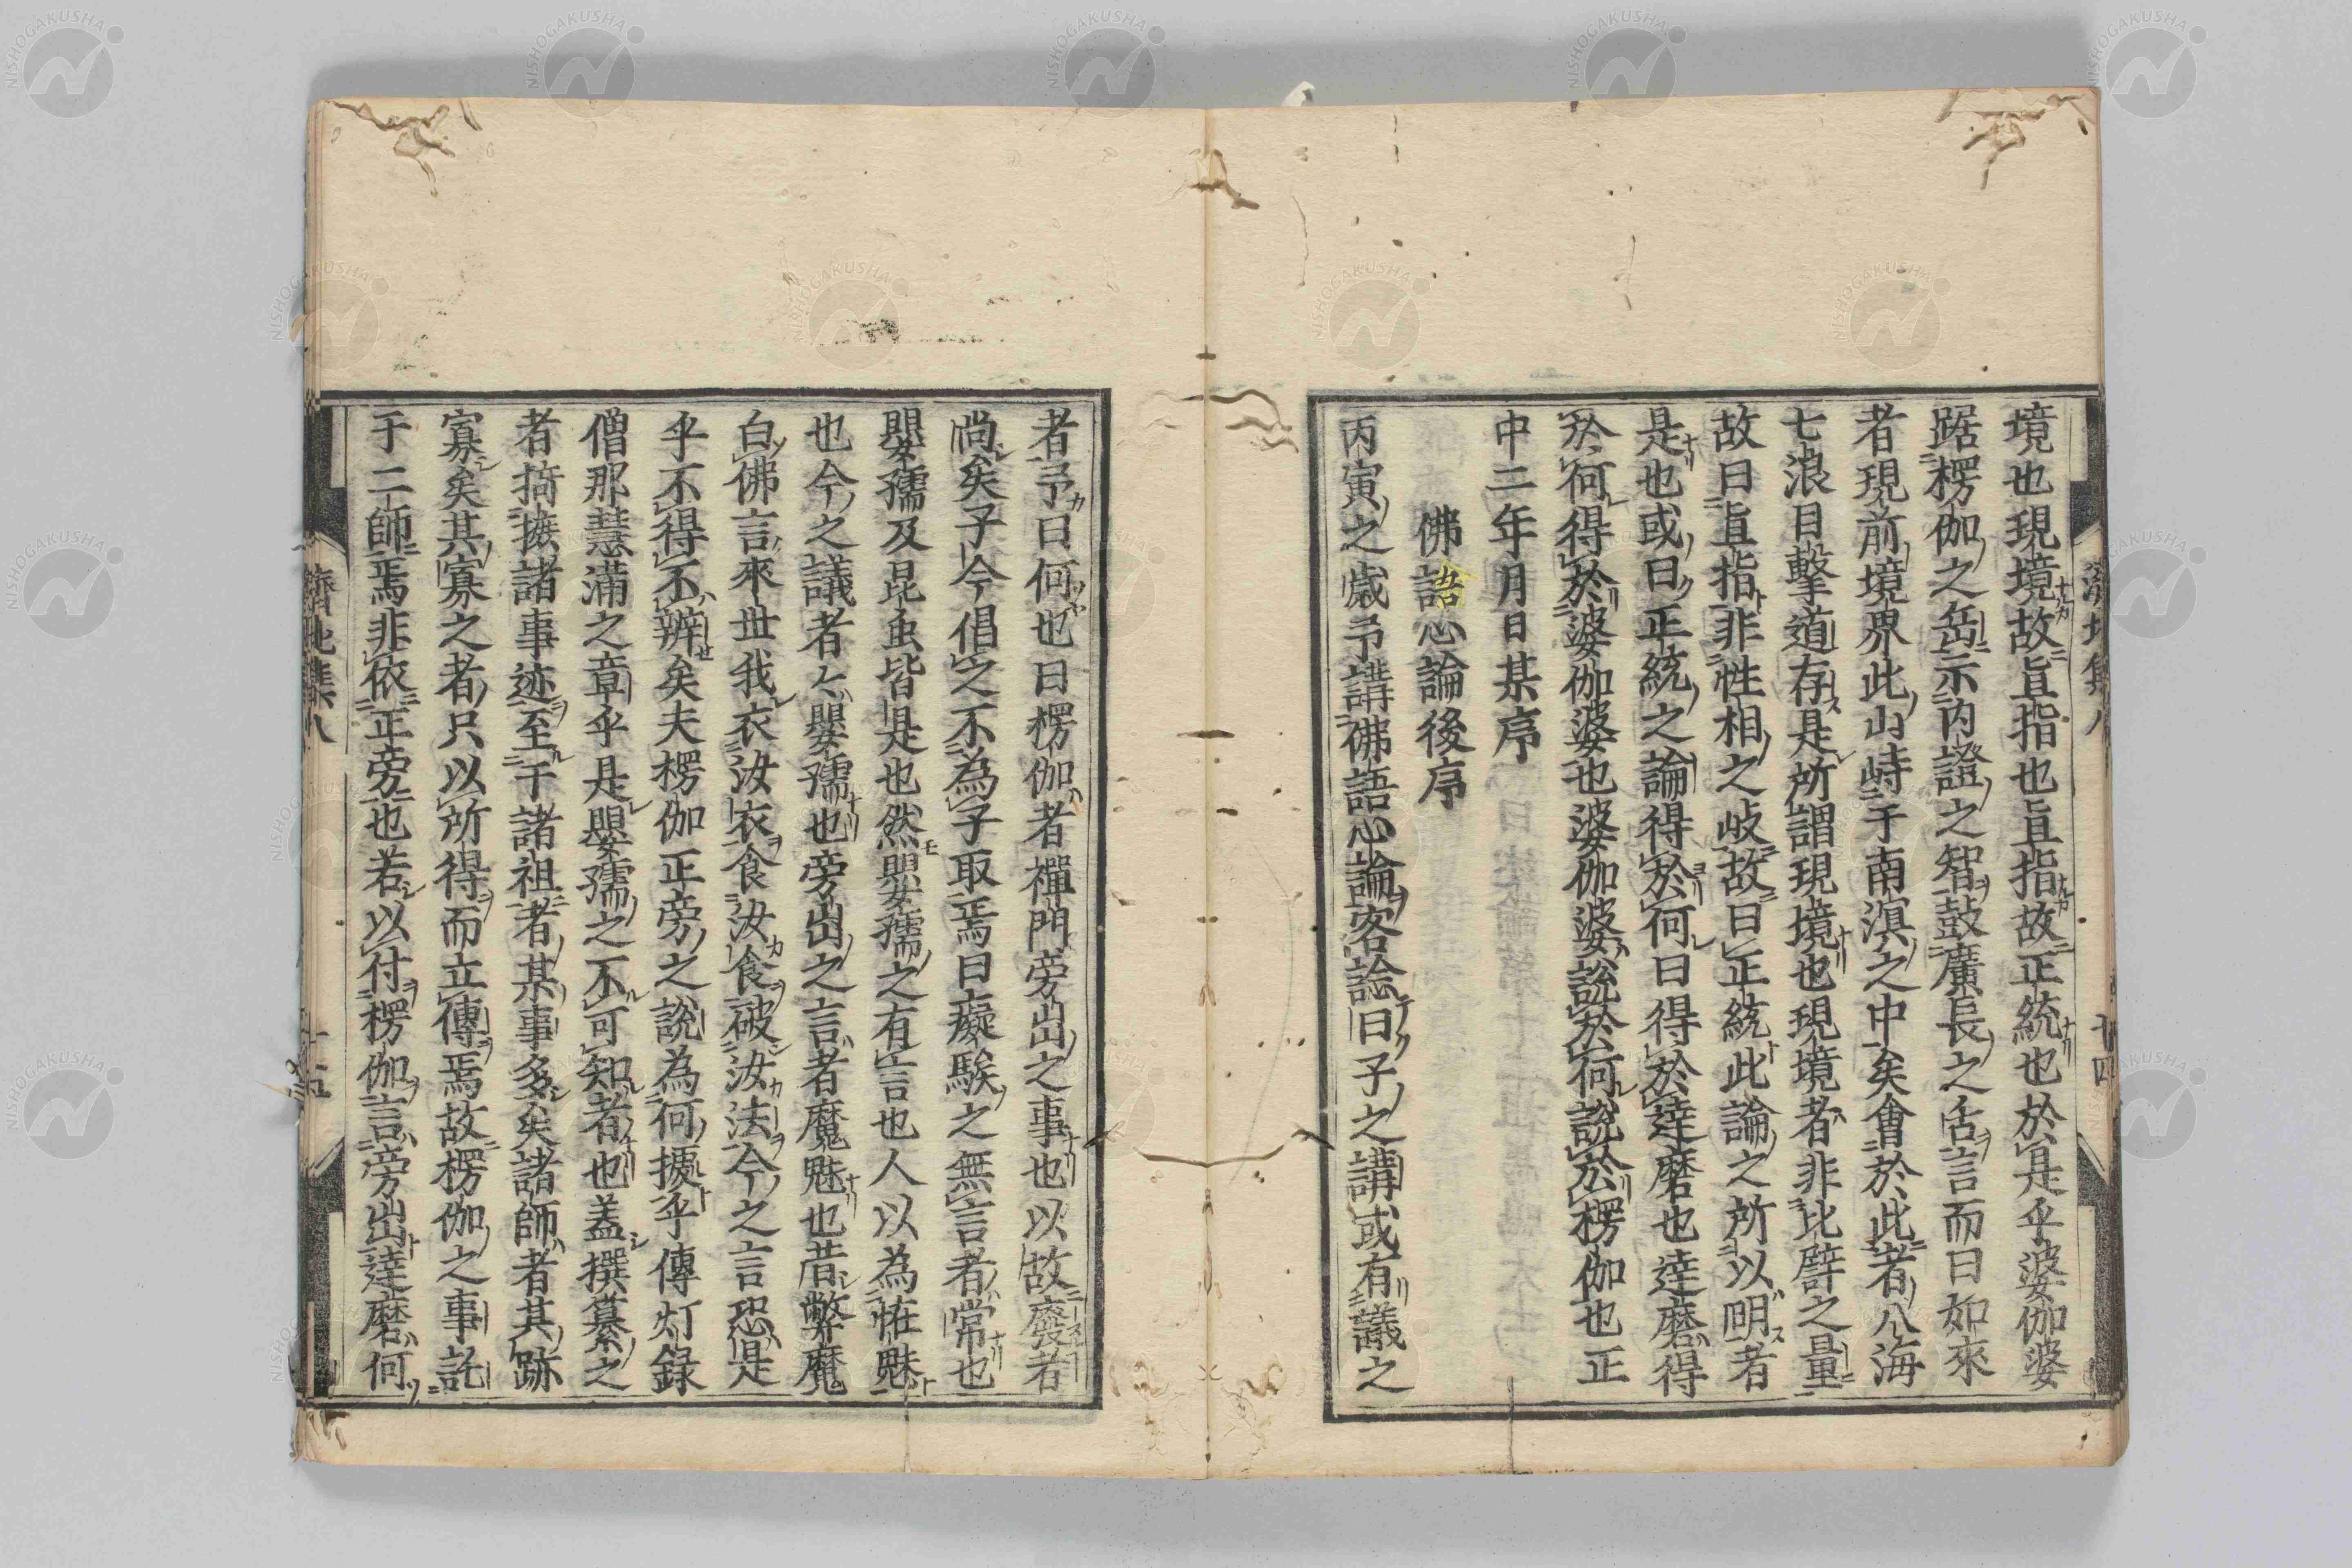 境也現境故直指也直指故正統也於是乎婆伽婆
踞楞伽之岳示内證之智鼓廣長之舌言而曰如來
者現前境界此山峙于南溟之中矣會於此者八海
七浪目擊道存是所謂現境也現境者非比譬之量
故曰直指非性相之岐故曰正統此論之所以明者
是也或曰正統之論得於何曰得於達磨也達磨得
於何得於婆伽婆也婆伽婆說於何說於楞伽也正
中二年月日某序
佛語心論後序
丙寅之歲予講佛語心論客諗曰子之講或有議之
者予曰何也曰楞伽者禪門旁出之事也以故廢者
尚矣子今倡之不為子取焉曰癡騃之無言者常也
嬰孺及昆虫皆是也然嬰孺之有言也人以為恠魅
也今之議者亽嬰孺也旁出之言者魔魅也昔弊魔
白佛言來世我衣汝衣食汝食破汝法今之言恐是
乎不得不辨矣夫楞伽正旁之說為何據乎傳灯録
僧那慧滿之章乎是嬰孺之不可知者也蓋撰纂之
者掎摭諸事迹至于諸祖者某事多矣諸師者其跡
寡矣其寡之者只以所得而立傳焉故楞伽之事託
于二師焉非依正旁也若以付楞伽言旁出達磨何
濟北集八
廿四
濟北集八